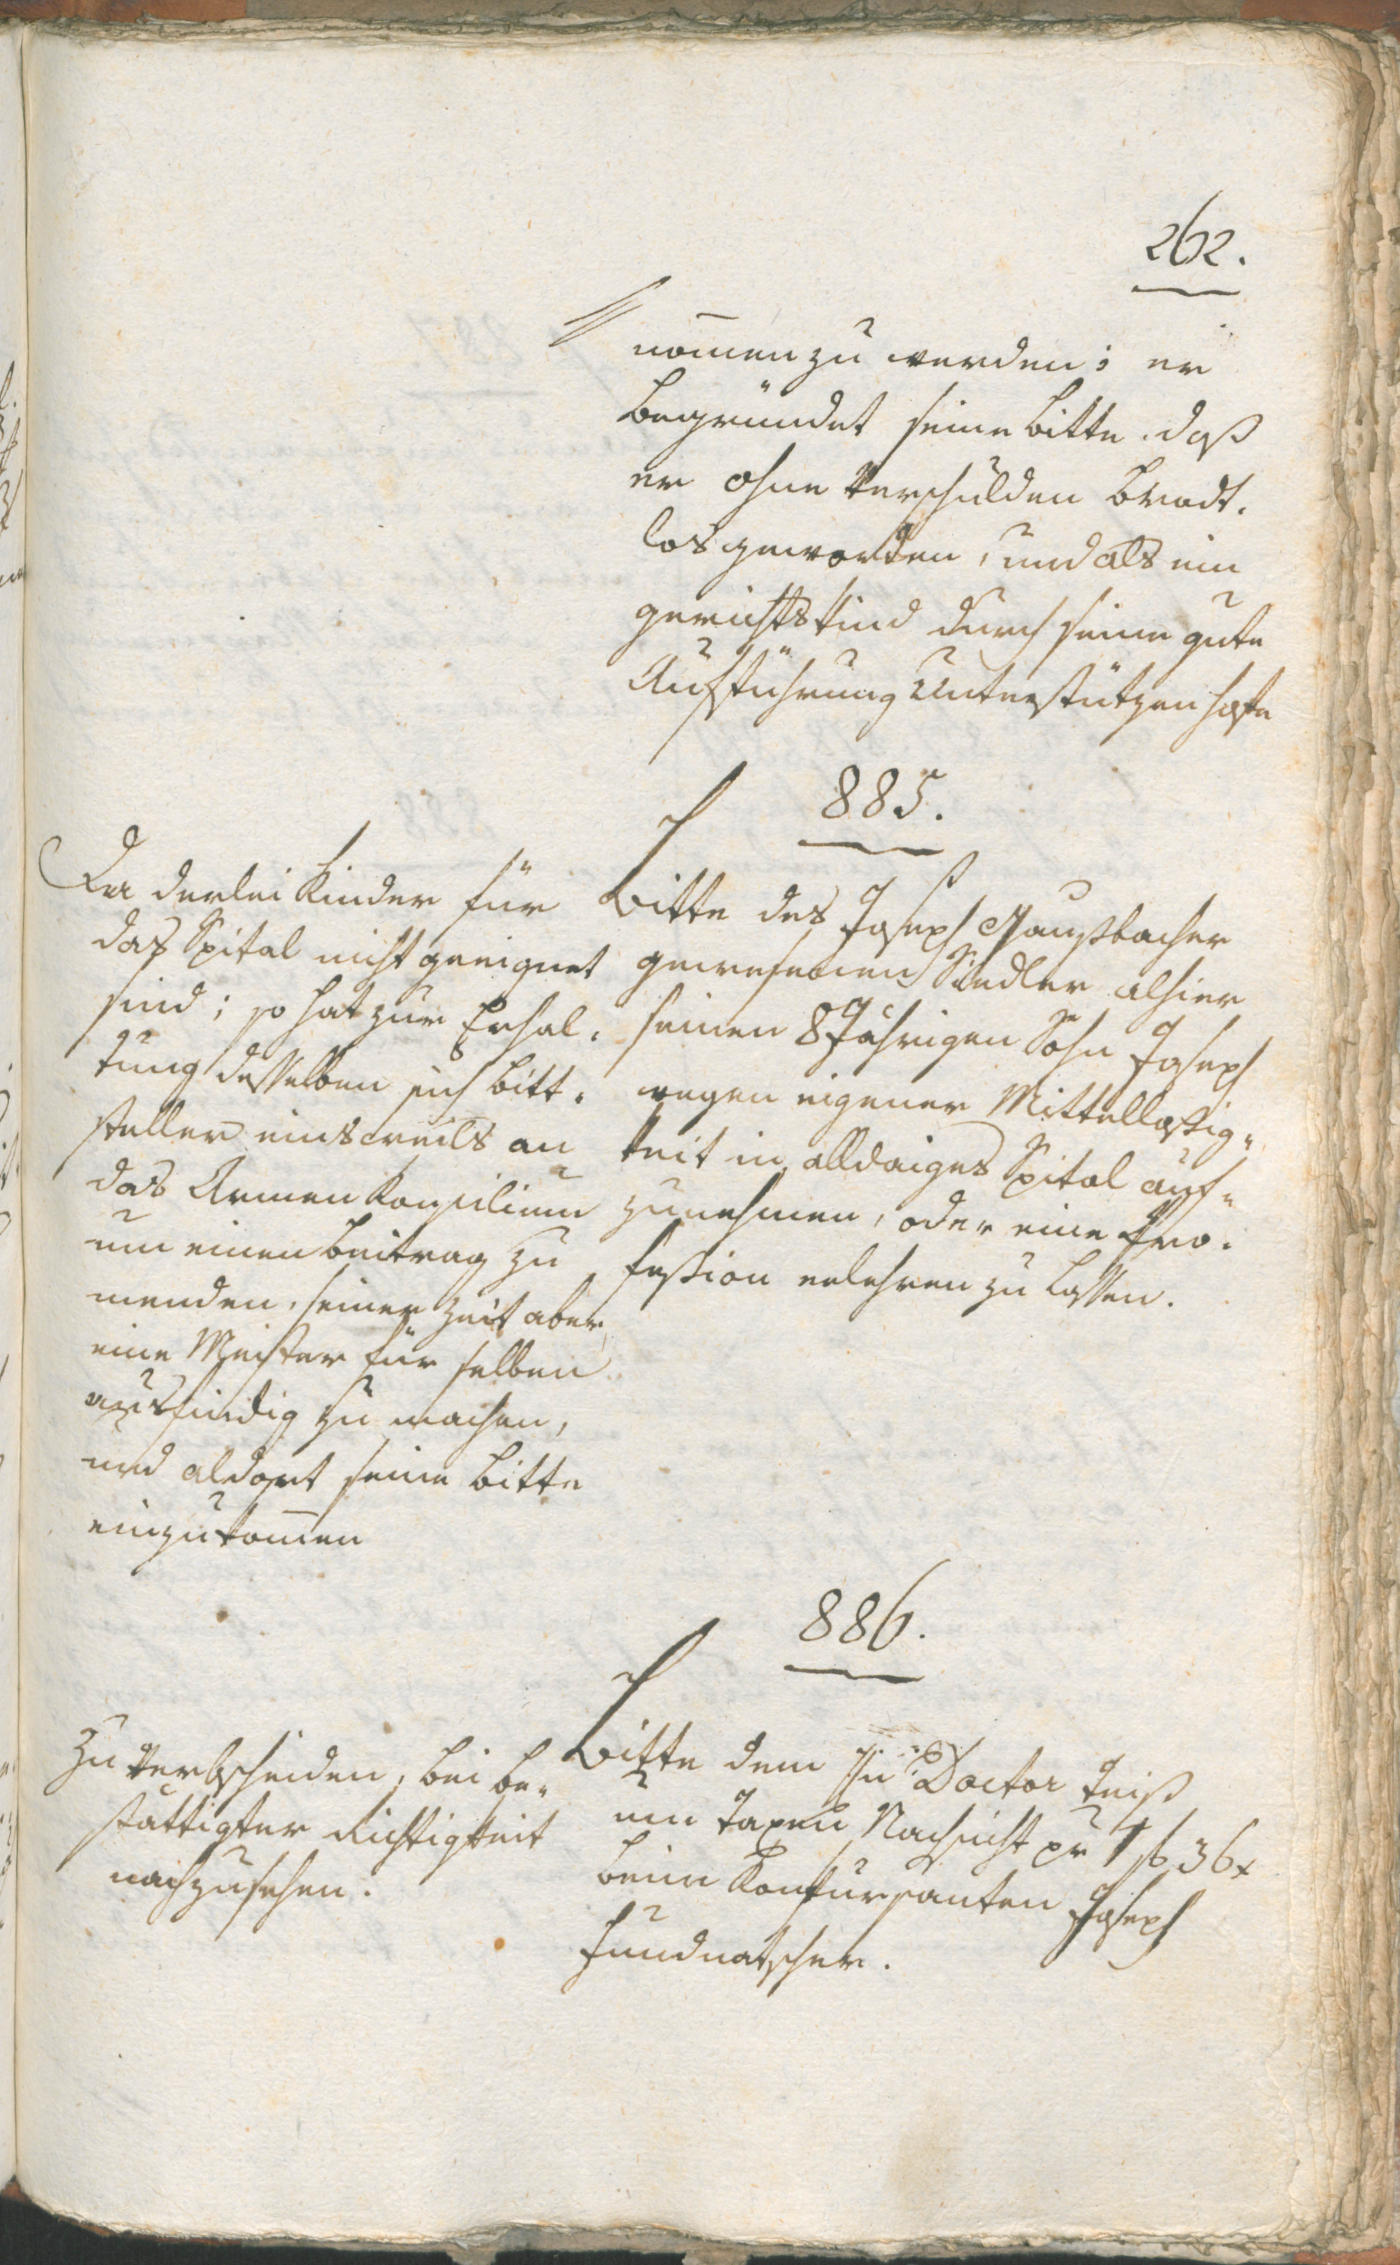 262.
nom̅en zu werden; er
begründet seine bitte. daß
er ohne Verschulden brodt.
los geworden, und als ein
gerichtskind durch seine gute
Aufführung Unterstützen
885.
Bitte des Joseph
gewesenen Siedler alhier
seinen 8 Jährigen Sohn Joseph
wegen eigener Mittellosig„
keit in alldaiges Spital auf„
zunehmen, oder eine Pro.
feßion erlehren zu lassen.
Da derlei Kinder für
das Spital nicht geeignet
sind; so hat zur Erhal.
tung desselben sich bitt.
steller einsweils an
das Armen Konsilium
um einen beitrag zu
wenden, seiner Zeit aber
eine Meister für selben
ausfindig zu machen,
und aldort seine bitte
einzukom̅en
886.
Bitte dem Hn Doctor
um Taxen Nachsicht pr 1 f 36 x
beim Konkursanten Joseph
Zu Verbscheiden, bei be„
stättigter Richtigkeit
nachzusehen.